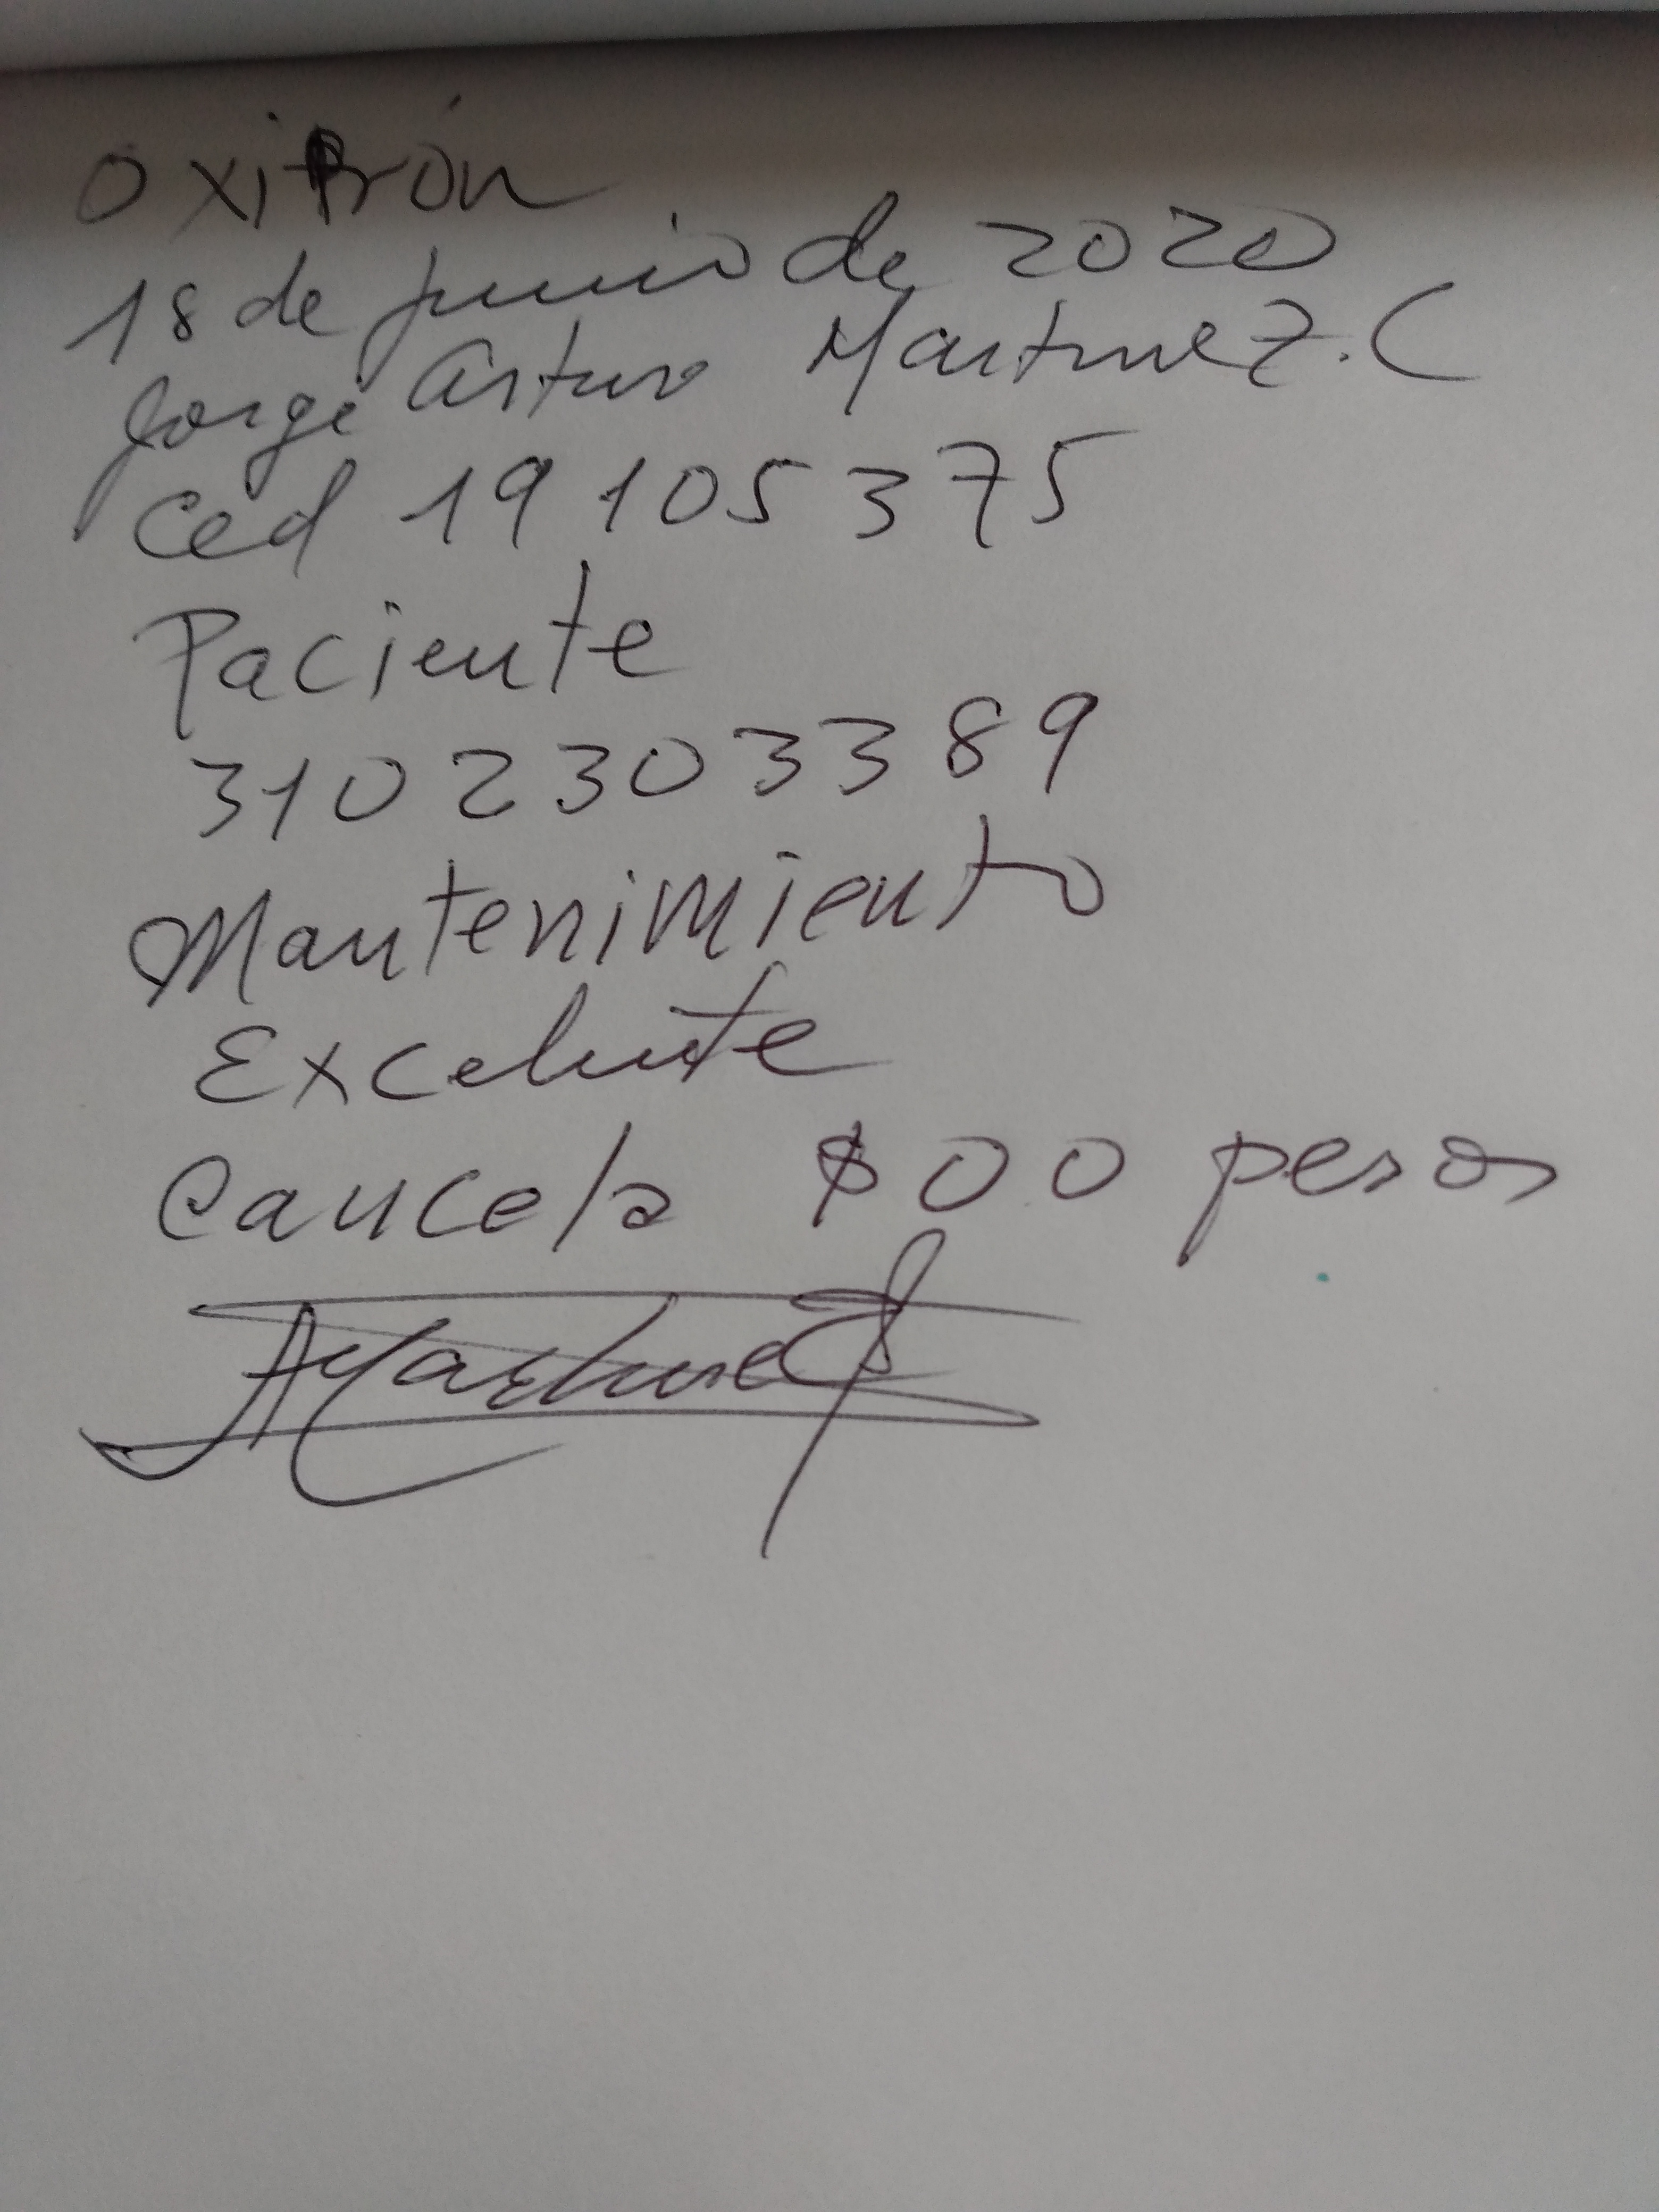 Oxitrón
18 de junio de 2020
Jorge Arturo Martinez. C
Ced 19 105 375
Paciente
310 2303389
Mantenimiento
Excelente
Cancela $ 00 pesos
AMartinez